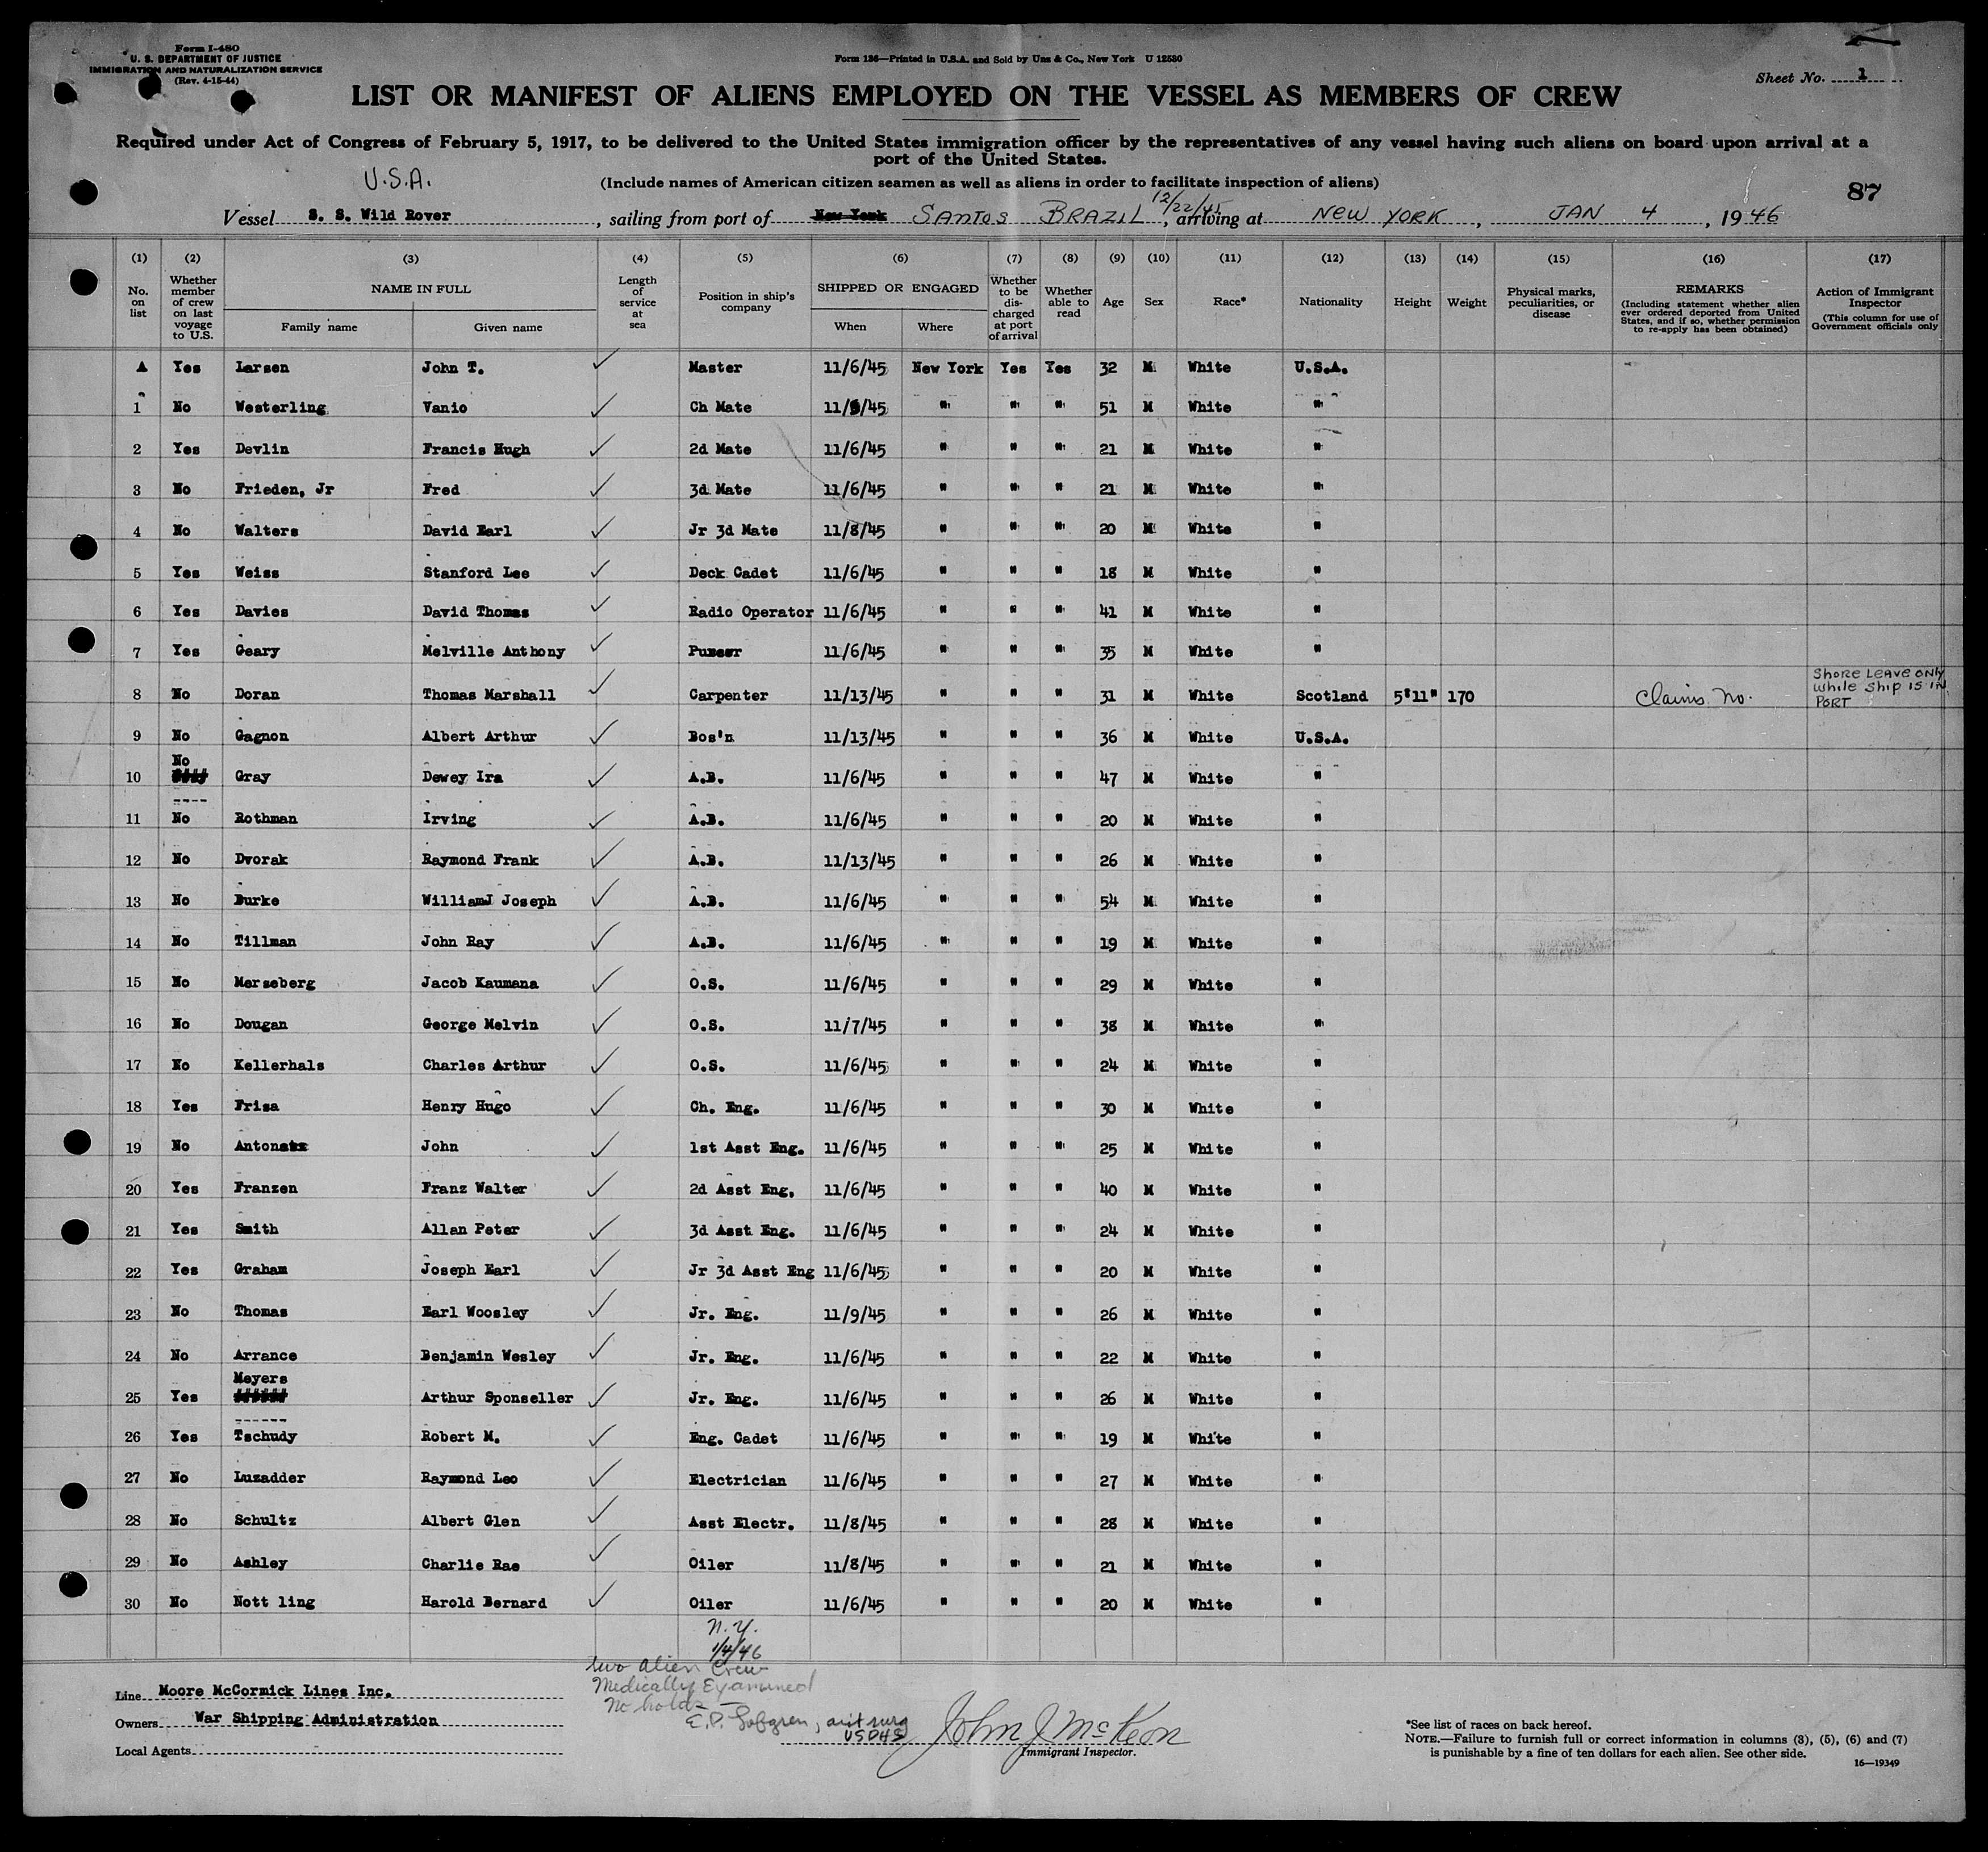 Form I-480
U. S. DEPARTMENT OF JUSTICE
IMMIGRATION AND NATURALIZATION SERVICE
(Rev. 4-15-44)
Form 136—Printed in U.S.A. and Sold by Unz & Co., New York U 12530
Sheet No. 1
LIST OR MANIFEST OF ALIENS EMPLOYED ON THE VESSEL AS MEMBERS OF CREW
Required under Act of Congress of February 5, 1917, to be delivered to the United States immigration officer by the representatives of any vessel having such aliens on board upon arrival at a
port of the United States.
U.S.A.
(Include names of American citizen seamen as well as aliens in order to facilitate inspection of aliens)
87
Vessel S. S. Wild Rover, sailing from port of New York SANTOS BRAZIL 12/22/45, arriving at NEW YORK, JAN 4, 1946
(1) (2) (3) (4) (5) (6) (7) (8) (9) (10) (11) (12) (13) (14) (15) (16) (17)
No. on list
Whether member of crew on last voyage to U.S.
NAME IN FULL
Family name
Given name
Length of service at sea
Position in ship's company
SHIPPED OR ENGAGED
When
Where
Whether to be discharged at port of arrival
Whether able to read
Age
Sex
Race*
Nationality
Height
Weight
Physical marks, peculiarities, or disease
REMARKS
(Including statement whether alien ever ordered deported from United States, and if so, whether permission to re-apply has been obtained)
Action of Immigrant Inspector
(This column for use of Government officials only
A Yes Larsen John T. ✓ Master 11/6/45 New York Yes Yes 32 M White U.S.A.
1 No Westerling Vanio ✓ Ch Mate 11/6/45 " " " 51 M White "
2 Yes Devlin Francis Hugh ✓ 2d Mate 11/6/45 " " " 21 M White "
3 No Frieden, Jr Fred ✓ 3d Mate 11/6/45 " " " 21 M White "
4 No Walters David Earl ✓ Jr 3d Mate 11/8/45 " " " 20 M White "
5 Yes Weiss Stanford Lee ✓ Deck Cadet 11/6/45 " " " 18 M White "
6 Yes Davies David Thomas ✓ Radio Operator 11/6/45 " " " 41 M White "
7 Yes Geary Melville Anthony ✓ Purser 11/6/45 " " " 35 M White "
8 No Doran Thomas Marshall ✓ Carpenter 11/13/45 " " " 31 M White Scotland 5'11" 170 Claims No. SHORE LEAVE ONLY while ship IS IN PORT
9 No Gagnon Albert Arthur ✓ Bos'n 11/13/45 " " " 36 M White U.S.A.
10 No Gray Dewey Ira ✓ A.B. 11/6/45 " " " 47 M White "
11 No Rothman Irving ✓ A.B. 11/6/45 " " " 20 M White "
12 No Dvorak Raymond Frank ✓ A.B. 11/13/45 " " " 26 M White "
13 No Burke WilliamJ Joseph ✓ A.B. 11/6/45 " " " 54 M White "
14 No Tillman John Ray ✓ A.B. 11/6/45 " " " 19 M White "
15 No Merseberg Jacob Kaumana ✓ O.S. 11/6/45 " " " 29 M White "
16 No Dougan George Melvin ✓ O.S. 11/7/45 " " " 38 M White "
17 No Kellerhals Charles Arthur ✓ O.S. 11/6/45 " " " 24 M White "
18 Yes Frisa Henry Hugo ✓ Ch. Eng. 11/6/45 " " " 30 M White "
19 No John ✓ 1st Asst Eng. 11/6/45 " " " 25 M White "
20 Yes Franzen Franz Walter ✓ 2d Asst Eng. 11/6/45 " " " 40 M White "
21 Yes Smith Allan Peter ✓ 3d Asst Eng. 11/6/45 " " " 24 M White "
22 Yes Graham Joseph Earl ✓ Jr 3d Asst Eng 11/6/45 " " " 20 M White "
23 No Thomas Earl Woosley ✓ Jr. Eng. 11/9/45 " " " 26 M White "
24 No Arrance Benjamin Wesley ✓ Jr. Eng. 11/6/45 " " " 22 M White "
25 Yes Meyers Arthur Sponseller ✓ Jr. Eng. 11/6/45 " " " 26 M White "
26 Yes Tschudy Robert M. ✓ Eng. Cadet 11/6/45 " " " 19 M White "
27 No Luzadder Raymond Leo ✓ Electrician 11/6/45 " " " 27 M White "
28 No Schultz Albert Glen ✓ Asst Electr. 11/8/45 " " " 28 M White "
29 No Ashley Charlie Rae ✓ Oiler 11/8/45 " " " 21 M White "
30 No Nott ling Harold Bernard ✓ Oiler 11/6/45 " " " 20 M White "
N.Y.
1/4/46
two alien Crew
Medically Examined
No holds —
E.P. Lofgren, asst surg
USPHS
Line Moore McCormick Lines Inc.
Owners War Shipping Administration
Local Agents
John J McKeon
Immigrant Inspector.
*See list of races on back hereof.
NOTE.—Failure to furnish full or correct information in columns (3), (5), (6) and (7)
is punishable by a fine of ten dollars for each alien. See other side.
16—19349